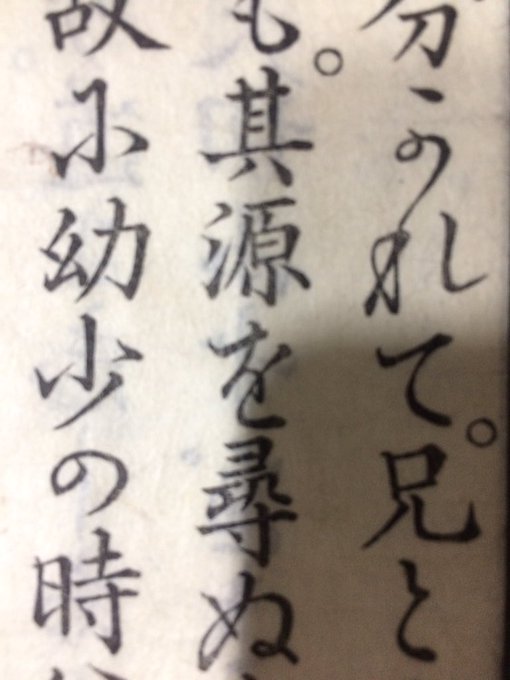 分かれて。兄と
も。其源を尋ぬ
故に幼少の時